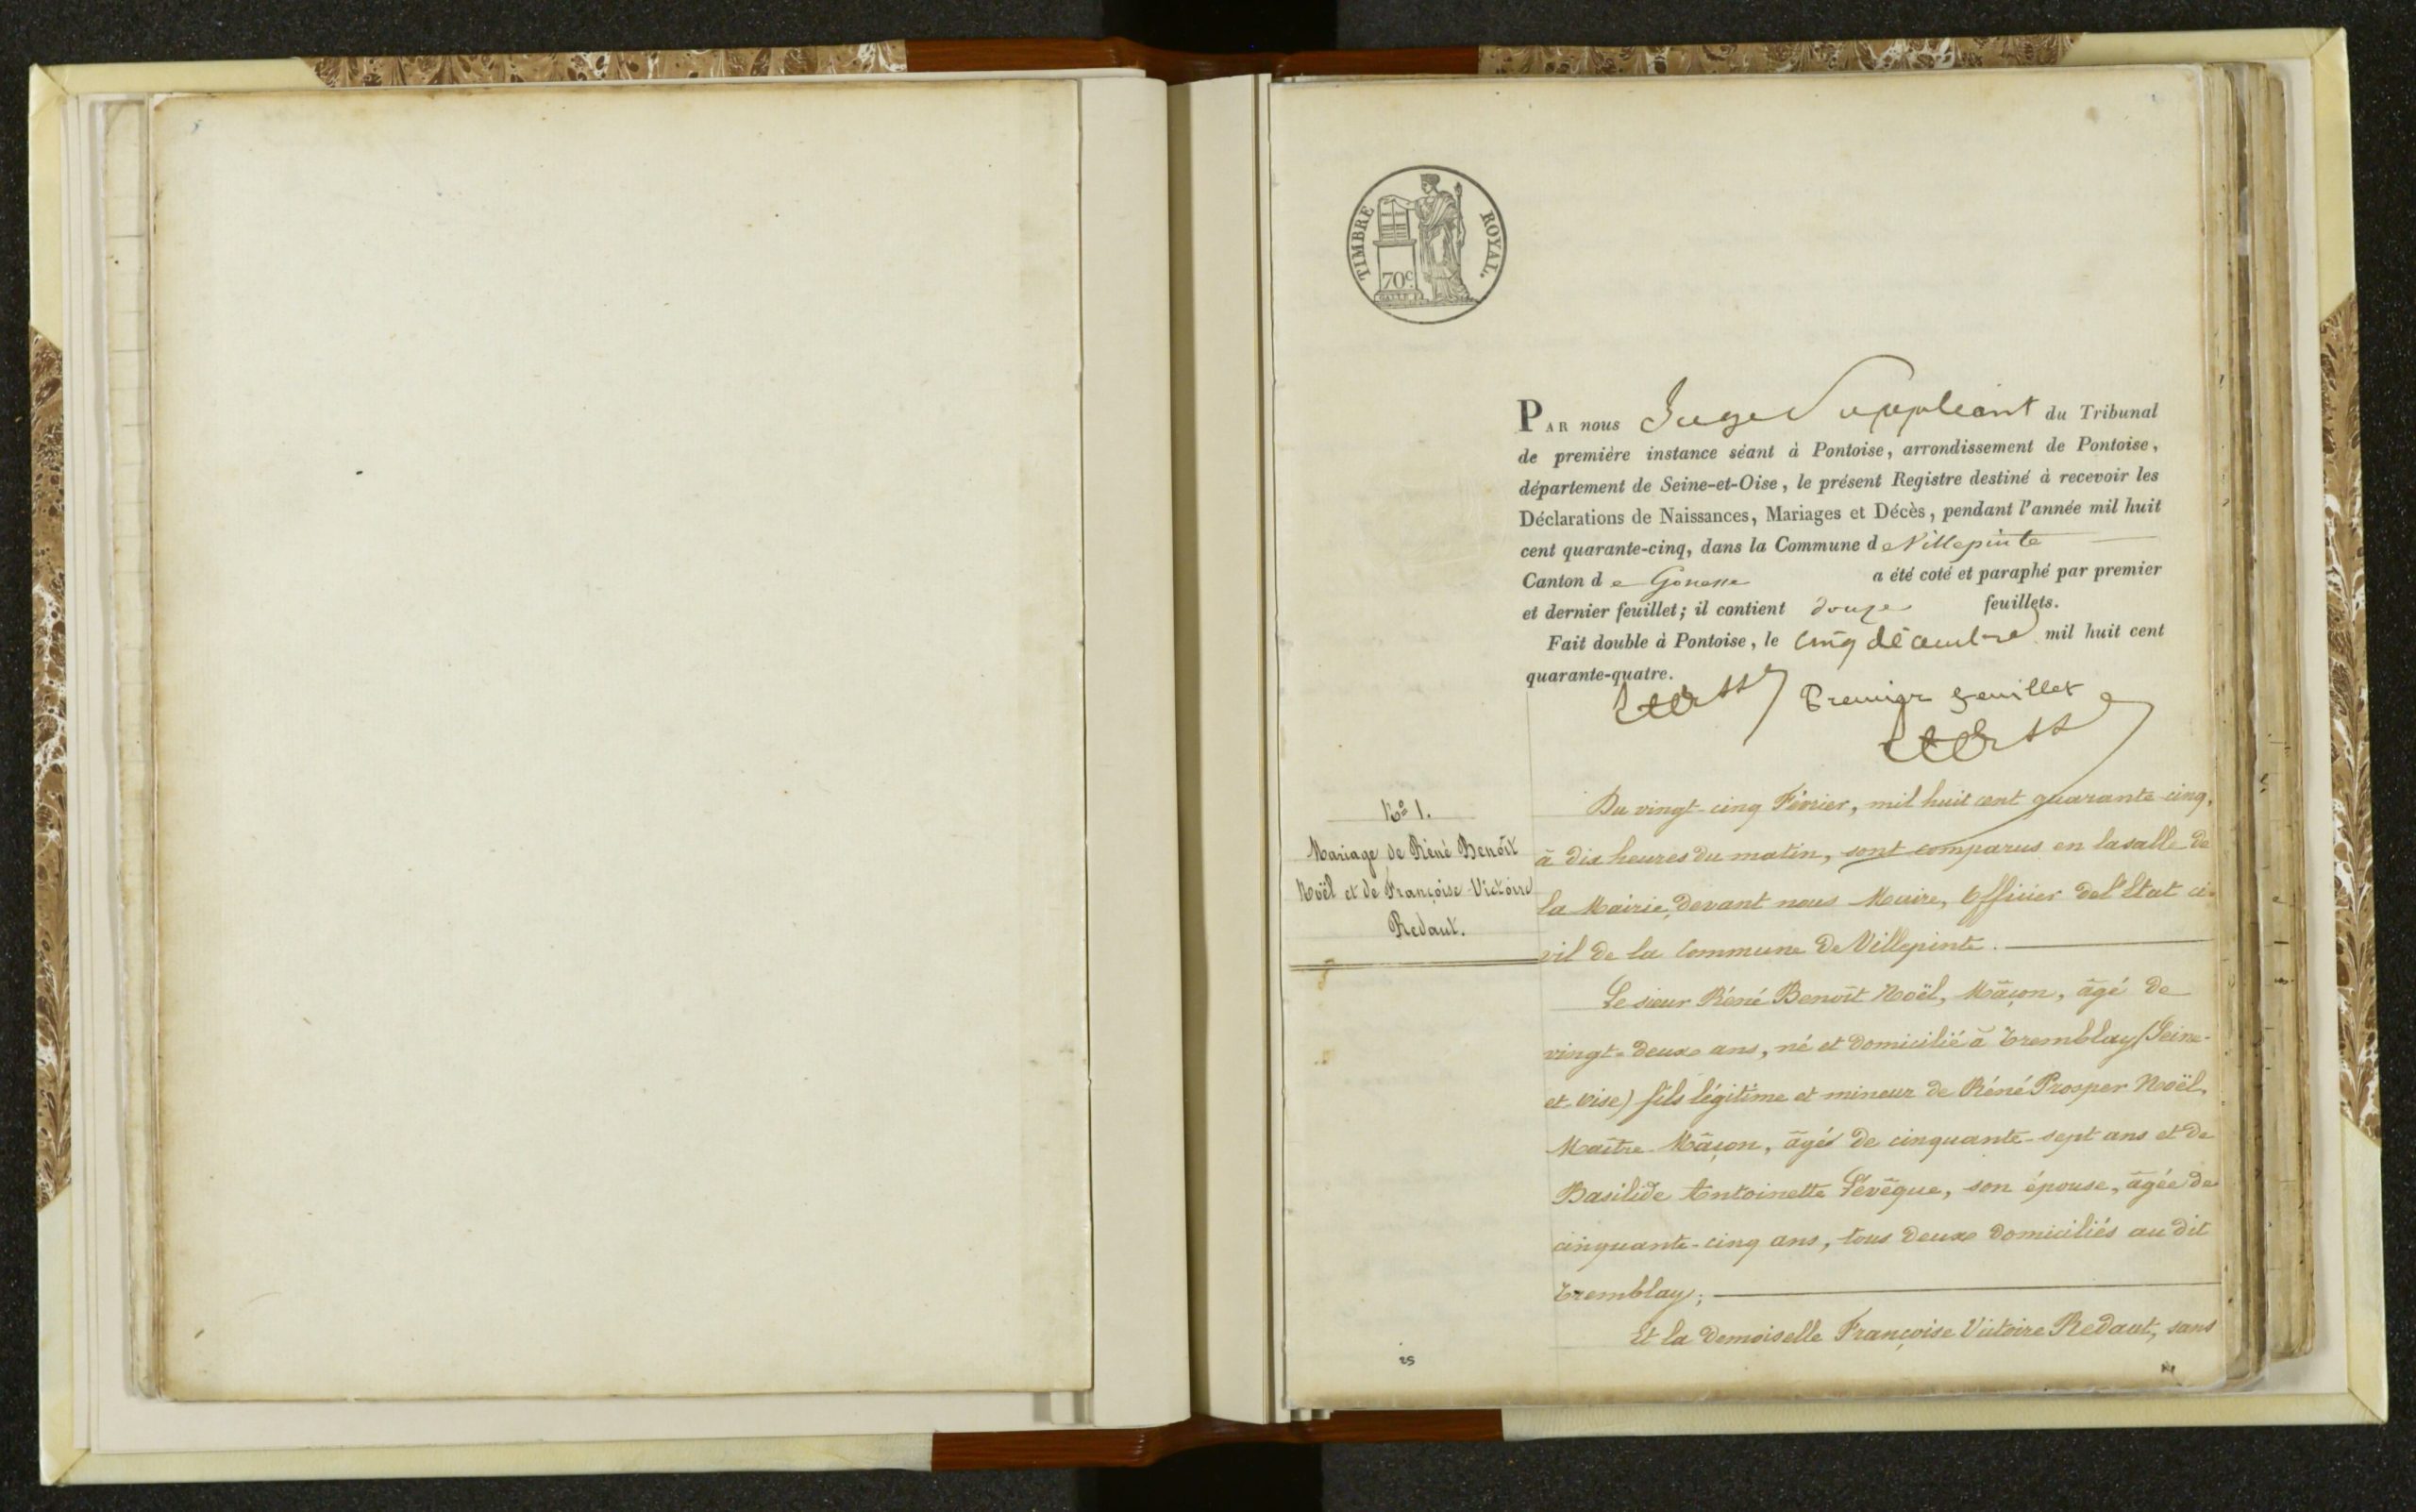 TIMBRE ROYAL.
70c
PAR nous Juge Suppléant du Tribunal
de première instance séant à Pontoise, arrondissement de Pontoise,
département de Seine-et-Oise, le présent Registre destiné à recevoir les
Déclarations de Naissances, Mariages et Décès, pendant l'année mil huit
cent quarante-cinq, dans la Commune de Villepinte
Canton de Gonesse a été coté et paraphé par premier
et dernier feuillet; il contient douze feuillets.
Fait double à Pontoise, le cinq décembre mil huit cent
quarante-quatre.
Premier feuillet
No 1.
Mariage de Réné Benoît
Noël et de Françoise Victoire
Redaut.
Du vingt-cinq Février, mil huit cent quarante-cinq,
à dix heures du matin, sont comparus en la salle de
la Mairie, devant nous Maire, Officier de l'Etat ci-
vil de la Commune de Villepinte.
Le sieur Réné Benoît Noël, Mâçon, âgé de
vingt-deux ans, né et domicilié à Tremblay (Seine-
et-Oise) fils légitime et mineur de Réné Prosper Noël,
Maître Mâçon, âgé de cinquante-sept ans et de
Basilide Antoinette Lévêque, son épouse, âgée de
cinquante-cinq ans, tous deux domiciliés au dit
Tremblay;
Et la demoiselle Françoise Victoire Redaut, sans
25